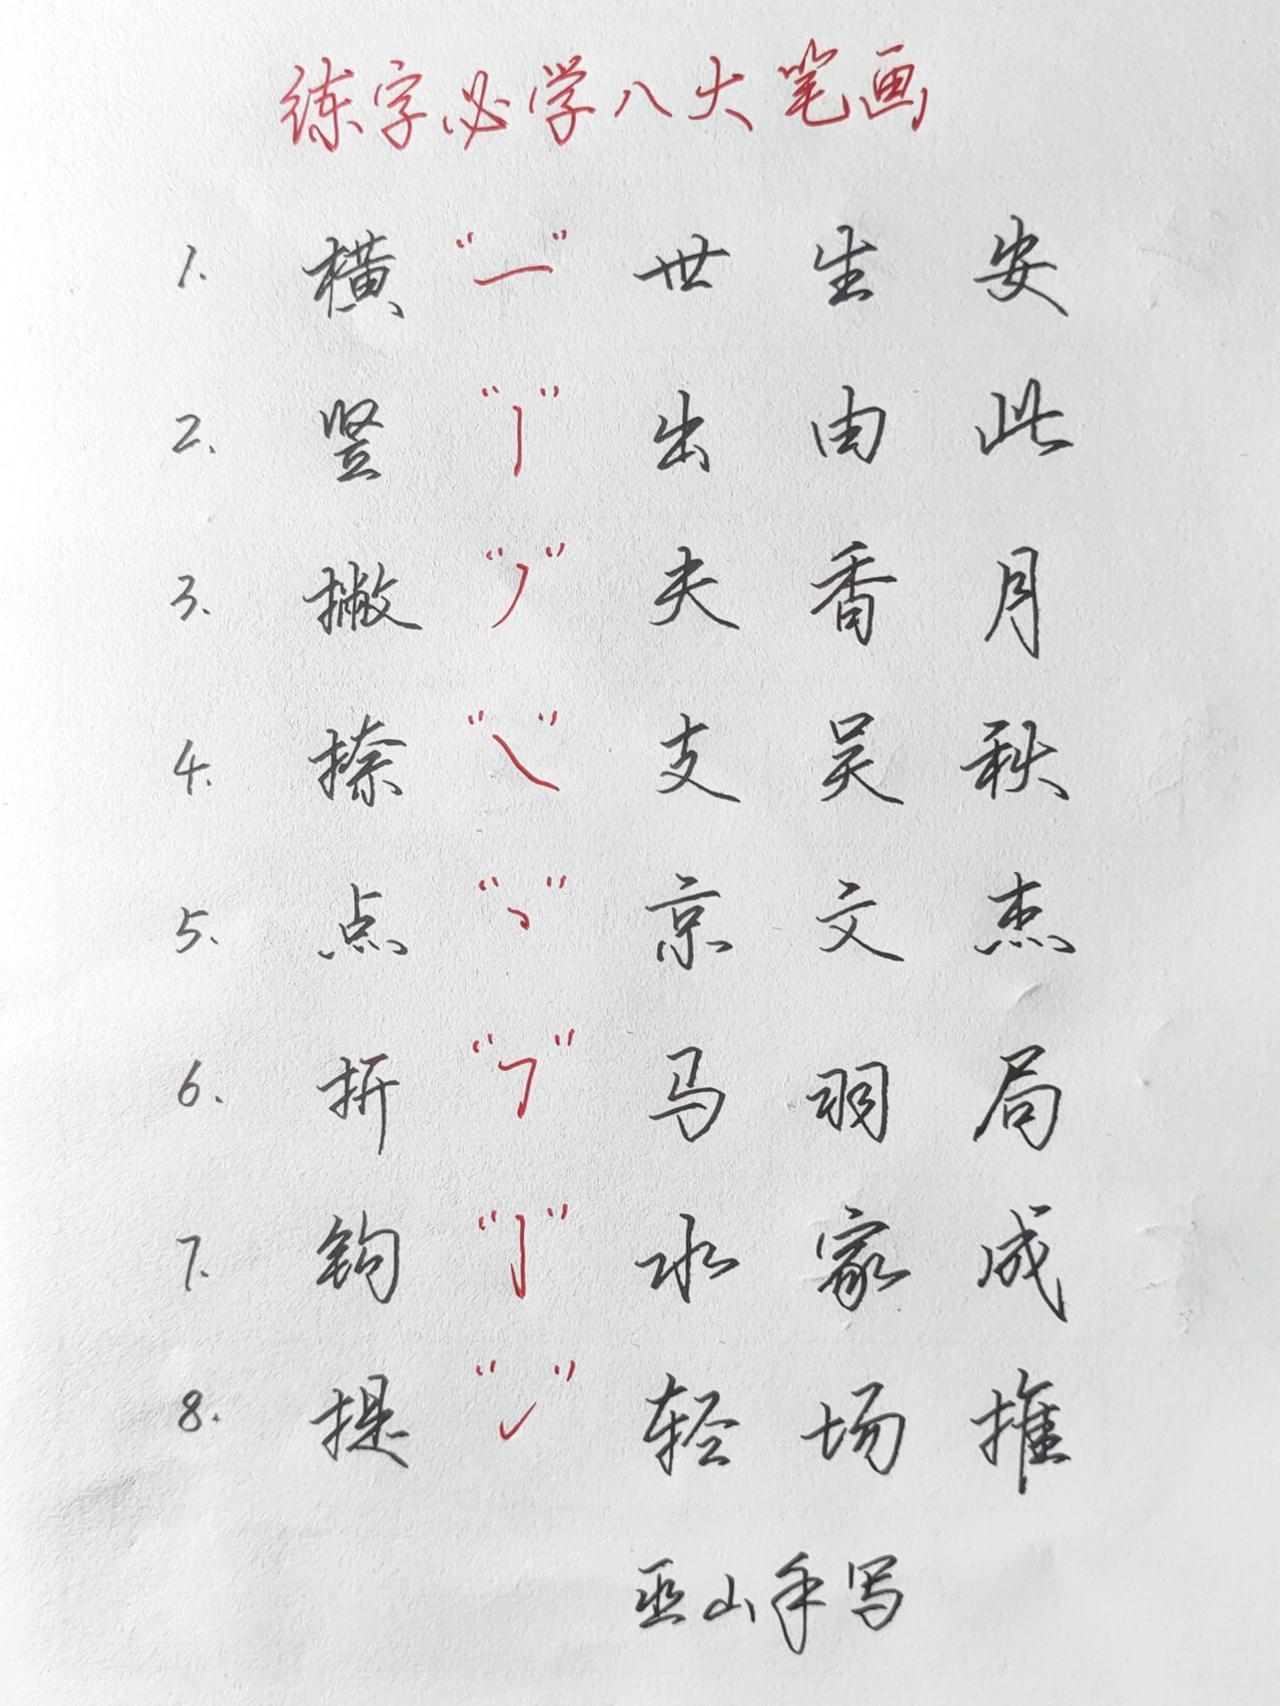 练字必学八大笔画
1. 横 “一” 世 生 安
2. 竖 “丨” 出 由 此
3. 撇 “丿” 夫 香 月
4. 捺 “㇏” 支 吴 秋
5. 点 “丶” 京 文 杰
6. 折 “𠃍” 马 羽 局
7. 钩 “亅” 水 家 成
8. 提 “㇀” 轻 场 推
巫山手写